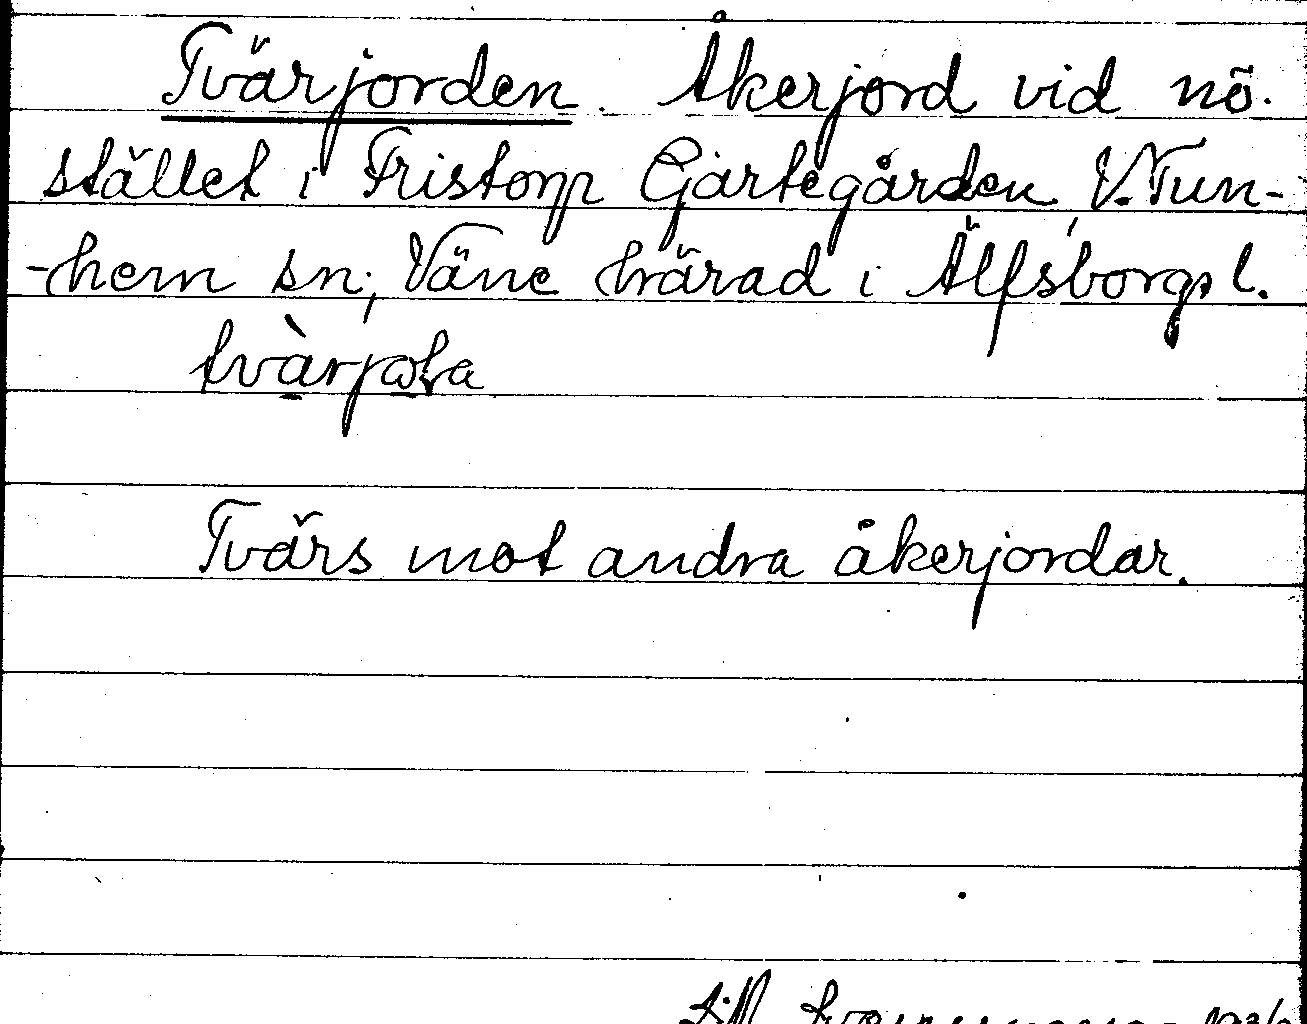 Tvärjorden. Åkerjord vid nö.
stället i Fristorp Gjärtegården, V. Tun-
-hem sn, Väne härad i Älfsborgs l.
Tvärs mot andra åkerjordar.